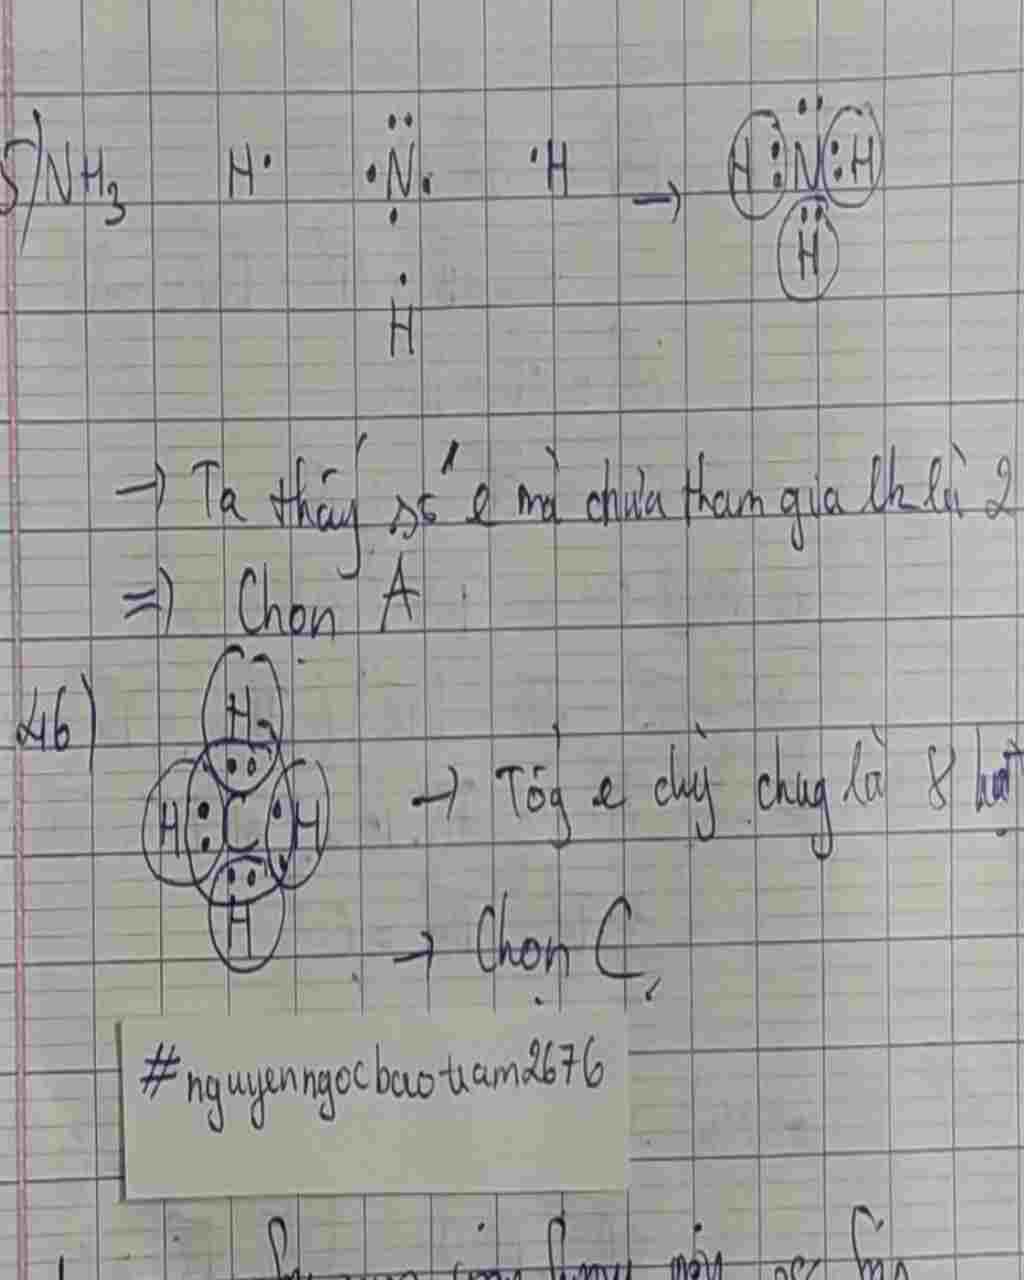 5) NH3 H· ·N̈· ·H → H:N̈:H
Ḣ H
→ Ta thấy số e mà chưa tham gia lk là 2
⇒ Chọn A
46) H
H:C:H → Tổg e dùg chug là 8 hạt
H
→ Chọn C
#nguyenngocbaotram2676